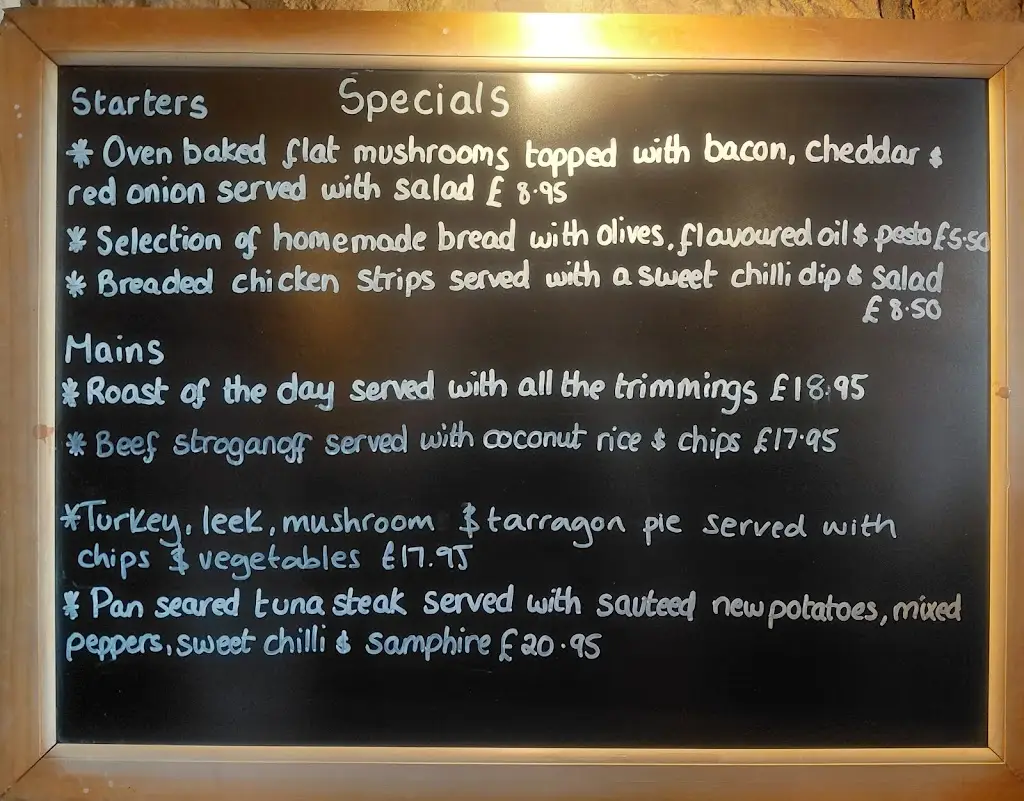 Starters Specials
* Oven baked flat mushrooms topped with bacon, cheddar &
red onion served with salad £ 8.95
* Selection of homemade bread with olives, flavoured oil & pesto £5.50
* Breaded chicken strips served with a sweet chilli dip & salad
£ 8.50
Mains
* Roast of the day served with all the trimmings £18.95
* Beef stroganoff served with coconut rice & chips £17.95
* Turkey, leek, mushroom & tarragon pie served with
chips & vegetables £17.95
* Pan seared tuna steak served with sauteed new potatoes, mixed
peppers, sweet chilli & samphire £20.95